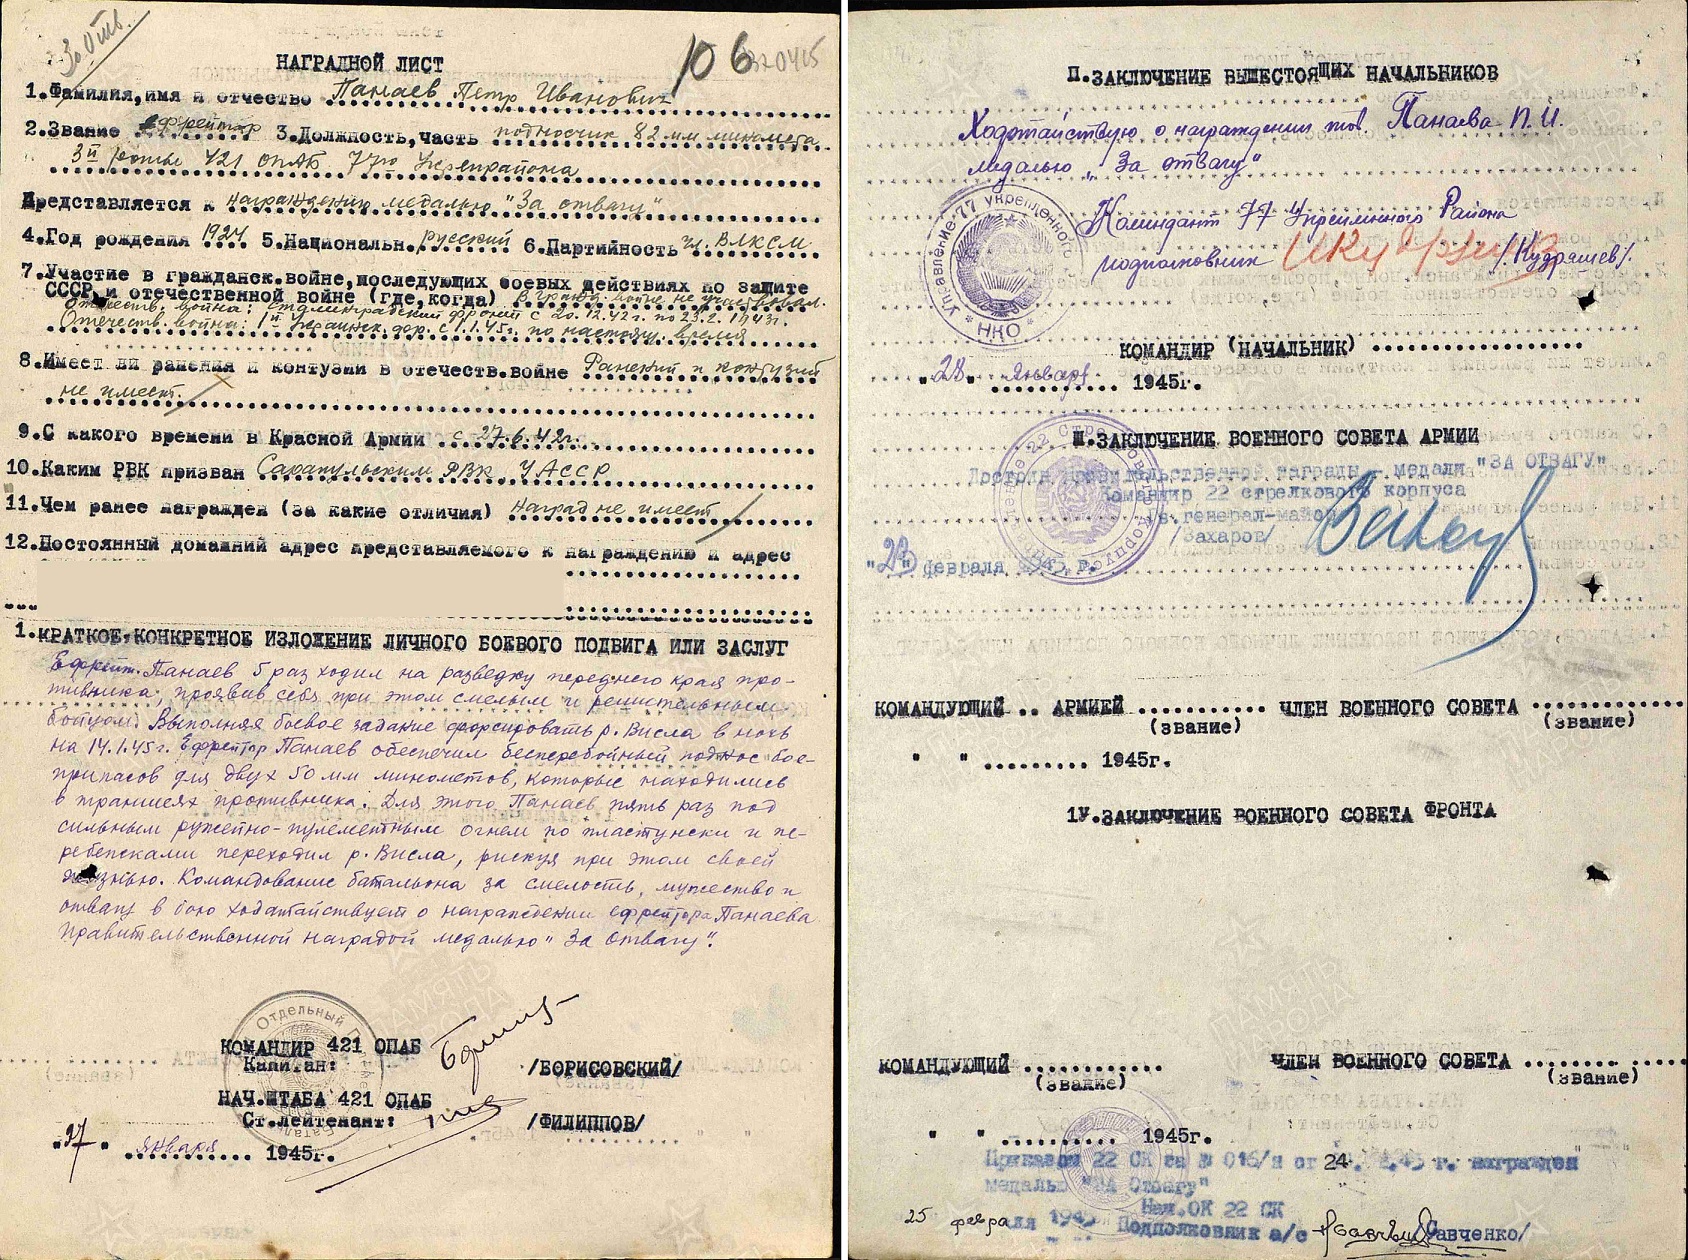 За отв.
106
320415
НАГРАДНОЙ ЛИСТ
1.Фамилия,имя и отчество Панаев Петр Иванович
2.Звание ефрейтор 3.Должность,часть подносчик 82 мм миномета
3й роты 421 ОПАБ 77го Укрепрайона
Представляется к награждению медалью "За отвагу"
4.Год рождения 1924 5.Национальн. русский 6.Партийность чл. ВЛКСМ
7.Участие в гражданск.войне,последующих боевых действиях по защите
СССР и отечественной войне (где,когда) В гражд. войне не участвовал.
Отечеств. война: Сталинградский фронт с 20.12.42г. по 23.2.1943г.
Отечеств. война: 1й Украинск. фр. с 1.1.45г. по настоящ. время
8.Имеет ли ранения и контузии в отечеств.войне Ранений и контузий
не имеет.
9.С какого времени в Красной Армии с 27.6.42г.
10.Каким РВК призван Сарапульским РВК, УАССР
11.Чем ранее награжден (за какие отличия) Наград не имеет
12.Постоянный домашний адрес представляемого к награждению и адрес
1.КРАТКОЕ,КОНКРЕТНОЕ ИЗЛОЖЕНИЕ ЛИЧНОГО БОЕВОГО ПОДВИГА ИЛИ ЗАСЛУГ
Ефрейт. Панаев 5 раз ходил на разведку переднего края про-
тивника, проявив себя при этом смелым и решительным
бойцом. Выполняя боевое задание форсировать р. Висла в ночь
на 14.1.45г. Ефрейтор Панаев обеспечил бесперебойный поднос бое-
припасов для двух 50 мм минометов, которые находились
в траншеях противника. Для этого Панаев пять раз под
сильным ружейно-пулеметным огнем по пластунски и пе-
ребежками переходил р. Висла, рискуя при этом своей
жизнью. Командование батальона за смелость, мужество и
отвагу в бою ходатайствует о награждении ефрейтора Панаева
правительственной наградой медалью "За Отвагу".
Отдельный
КОМАНДИР 421 ОПАБ
Капитан: /БОРИСОВСКИЙ/
НАЧ.ШТАБА 421 ОПАБ
Ст.лейтенант: /ФИЛИППОВ/
"27" января 1945г.
П.ЗАКЛЮЧЕНИЕ ВЫШЕСТОЯЩИХ НАЧАЛЬНИКОВ
Ходотайствую о награждении тов Панаева П.И.
медалью "За отвагу"
Комендант 77 Укрепленного Района
подполковник /Кудряшев/.
Управление 77 укрепленного
* НКО *
КОМАНДИР (НАЧАЛЬНИК)
"28" января 1945г.
Ш.ЗАКЛЮЧЕНИЕ ВОЕННОГО СОВЕТА АРМИИ
Достоин правительственной награды - медали "ЗА ОТВАГУ"
Командир 22 стрелкового корпуса
генерал-майор
/Захаров/
"23" февраля 1945 г.
КОМАНДУЮЩИЙ .. АРМИЕЙ ЧЛЕН ВОЕННОГО СОВЕТА
(звание) (звание)
" " 1945г.
1У.ЗАКЛЮЧЕНИЕ ВОЕННОГО СОВЕТА ФРОНТА
КОМАНДУЮЩИЙ ЧЛЕН ВОЕННОГО СОВЕТА
(звание) (звание)
" " 1945г.
Приказом 22 СК за № 016/н от 24.2.45 г. награжден
медалью "ЗА Отвагу"
Нач.ОК 22 СК
25 февраля 1945 Подполковник а/с /Савченко/